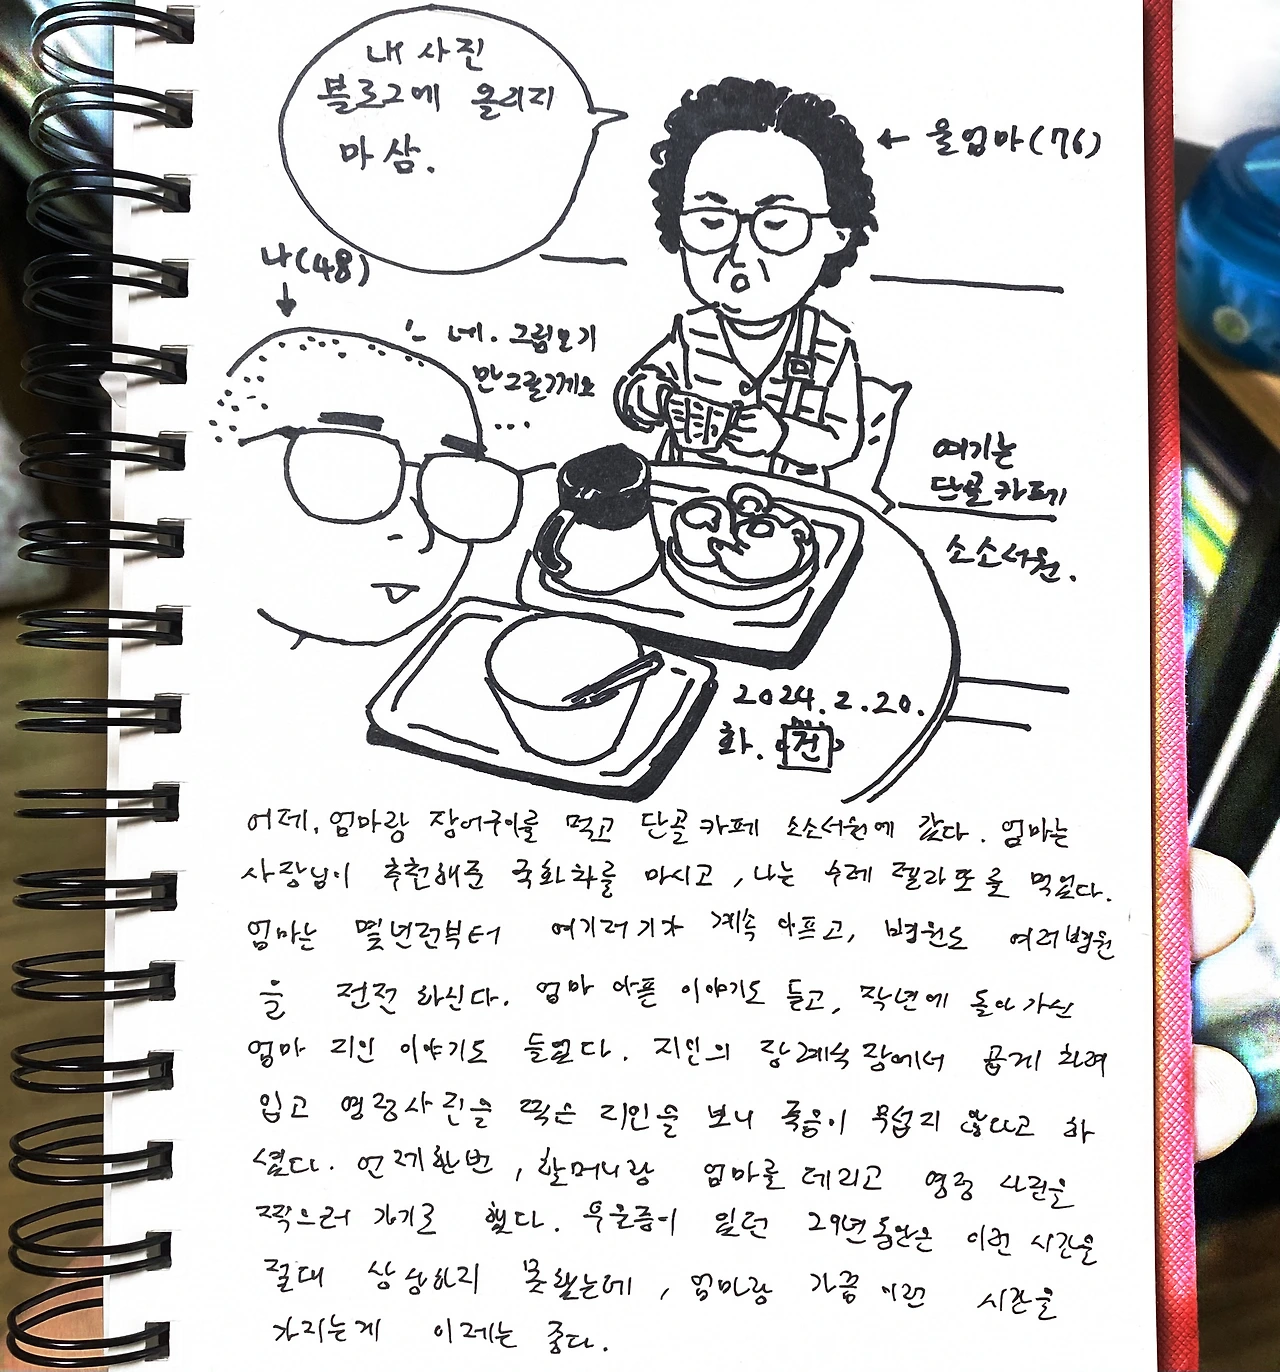 내 사진
블로그에 올리지
마 삼.
← 울엄마(76)
나(48)
네. 그림보기
만 그릴게요
....
여기는
단골 카페
소소서원.
2024.2.20.
화. 건
어제, 엄마랑 장어구이를 먹고 단골 카페 소소서원에 갔다. 엄마는
사장님이 추천해준 국화차를 마시고, 나는 수제 젤라또를 먹었다.
엄마는 몇년전부터 여기저기가 계속 아프고, 병원도 여러병원
을 전전 하신다. 엄마 아픈 이야기도 듣고, 작년에 돌아가신
엄마 지인 이야기도 들었다. 지인의 장례식장에서 곱게 차려
입고 영정사진을 찍은 지인을 보니 죽음이 무섭지 않다고 하
셨다. 언제한번, 할머니랑 엄마를 데리고 영정 사진을
찍으러 가기로 했다. 우울증이 있던 29년동안은 이런 시간을
절대 상상하지 못했는데, 엄마랑 가끔 이런 시간을
가지는게 이제는 좋다.